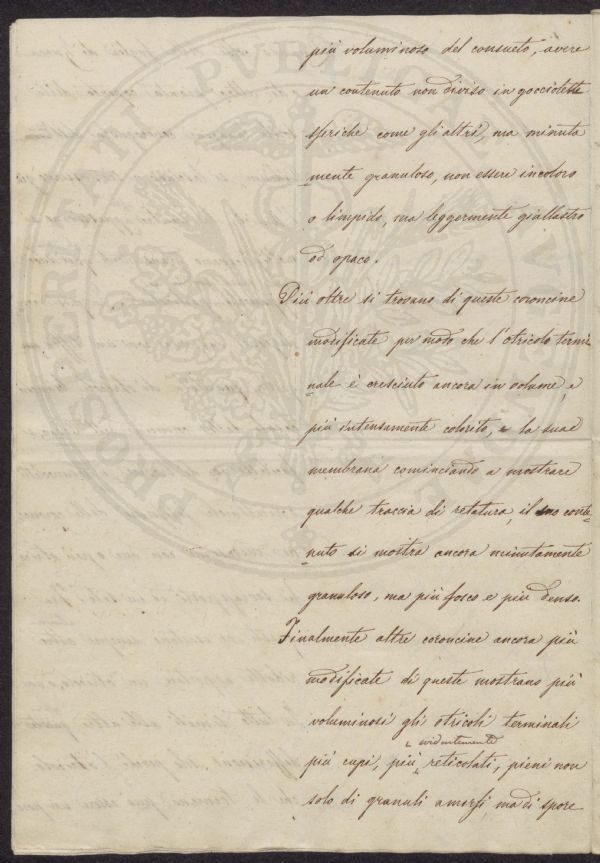 più voluminoso del consueto, avere
un contenuto non diviso in gocciolette
sferiche come gli altri, ma minuta
mente granuloso, non essere incoloro
o limpido, ma leggermente giallastro
od opaco.
Più oltre si trovano di queste coroncine
modificate per modo che l'otricolo termi-
nale è cresciuto ancora in volume, e
più intensamente colorito, e la sua
membrana cominciando a mostrare
qualche traccia di retatura, il suo conte-
nuto si mostra ancora minutamente
granuloso, ma più fosco e più denso.
Finalmente altre coroncine ancora più
modificate di queste mostrano più
voluminosi gli otricoli terminali
evidentemente
più cupi, più reticolati, pieni non
solo di granuli amorfi, ma di spore